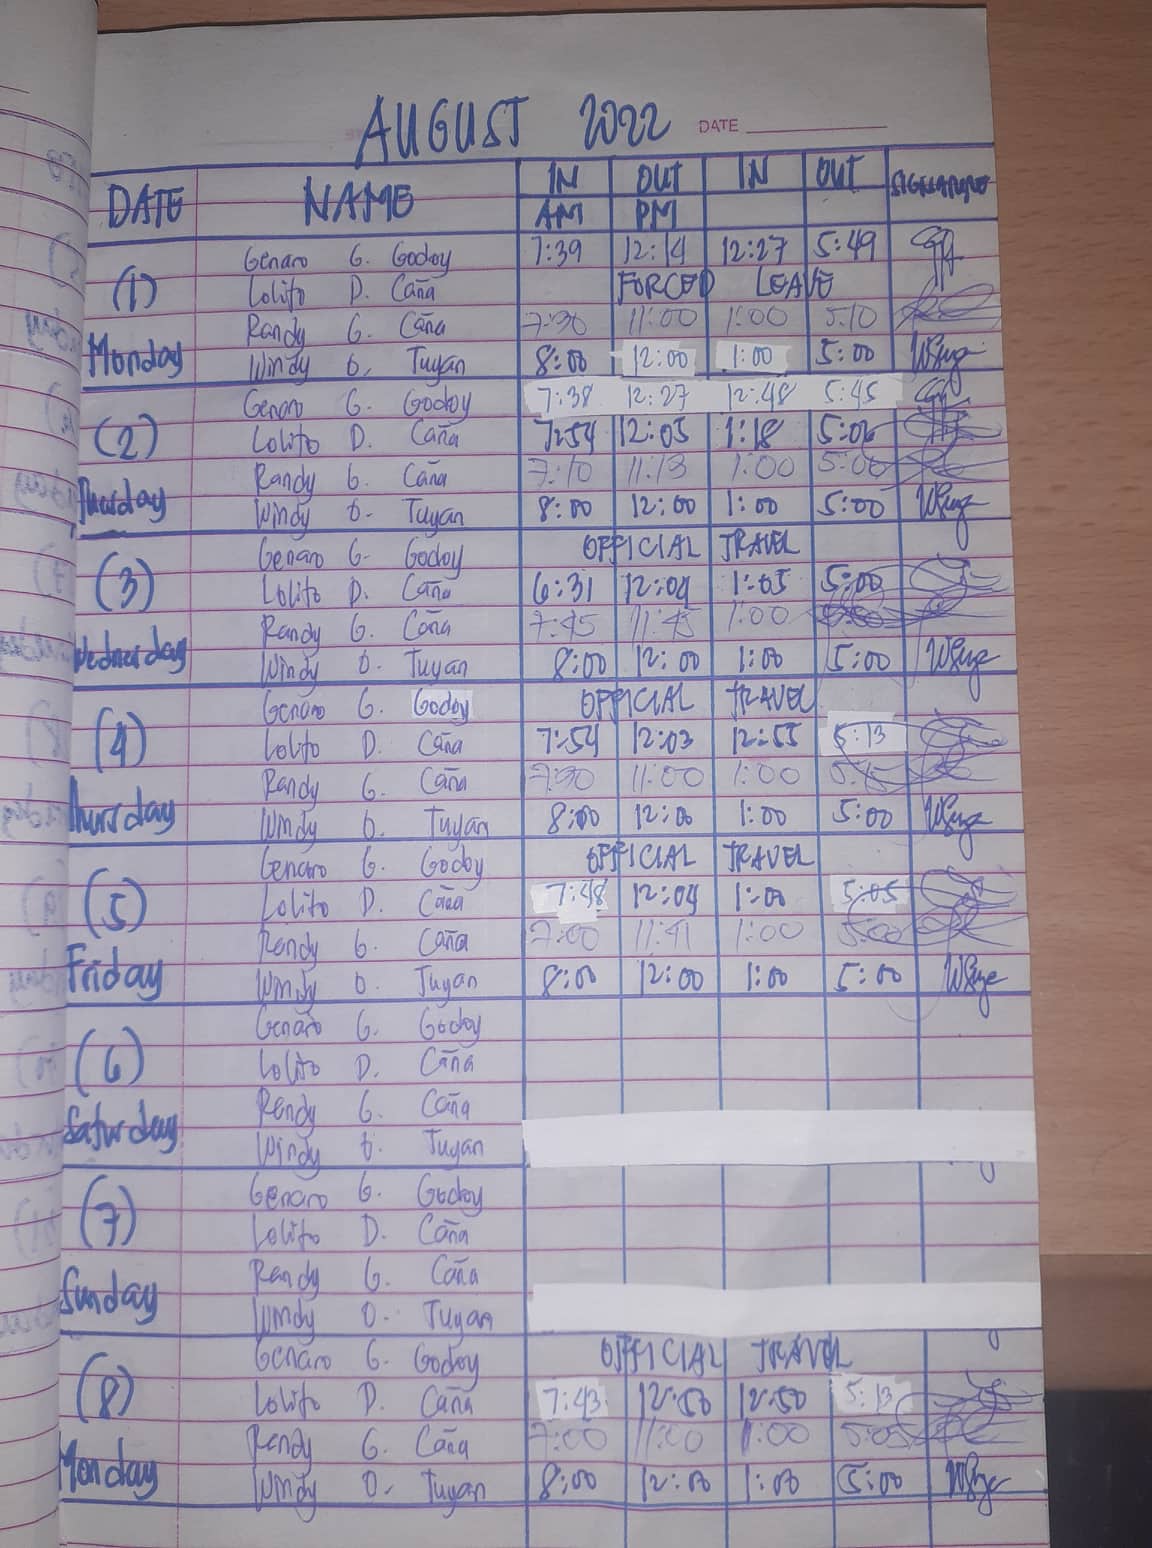 AUGUST 2022 DATE
DATE NAME IN OUT IN OUT SIGNATURE
AM PM
(1) Genaro G. Godoy 7:39 12:14 12:27 5:49
Lolito D. Caña FORCED LEAVE
Randy G. Caña 7:30 11:00 1:00 5:10
Monday Windy O. Tuyan 8:00 12:00 1:00 5:00
(2) Genaro G. Godoy 7:38 12:27 12:48 5:45
Lolito D. Caña 7:54 12:05 1:18 5:06
Randy G. Caña 7:10 11:13 1:00 5:00
Windy O. Tuyan 8:00 12:00 1:00 5:00
(3) Genaro G. Godoy OFFICIAL TRAVEL
Lolito D. Caña 6:31 12:04 1:05 5:00
Randy G. Caña 7:45 11:45 1:00
Wednesday Windy O. Tuyan 8:00 12:00 1:00 5:00
(4) Genaro G. Godoy OFFICIAL TRAVEL
Lolito D. Caña 7:54 12:03 12:55 5:13
Randy G. Caña 7:30 11:00 1:00
Thursday Windy O. Tuyan 8:00 12:00 1:00 5:00
(5) Genaro G. Godoy OFFICIAL TRAVEL
Lolito D. Caña 7:48 12:04 1:00 5:05
Randy G. Caña 7:00 11:41 1:00 5:00
Friday Windy O. Tuyan 8:00 12:00 1:00 5:00
(6) Genaro G. Godoy
Lolito D. Caña
Randy G. Caña
Saturday Windy O. Tuyan
(7) Genaro G. Godoy
Lolito D. Caña
Randy G. Caña
Sunday Windy O. Tuyan
(8) Genaro G. Godoy OFFICIAL TRAVEL
Lolito D. Caña 7:43 12:50 12:50 5:13
Randy G. Caña 7:00 11:00 1:00 5:05
Monday Windy O. Tuyan 8:00 12:00 1:00 5:00